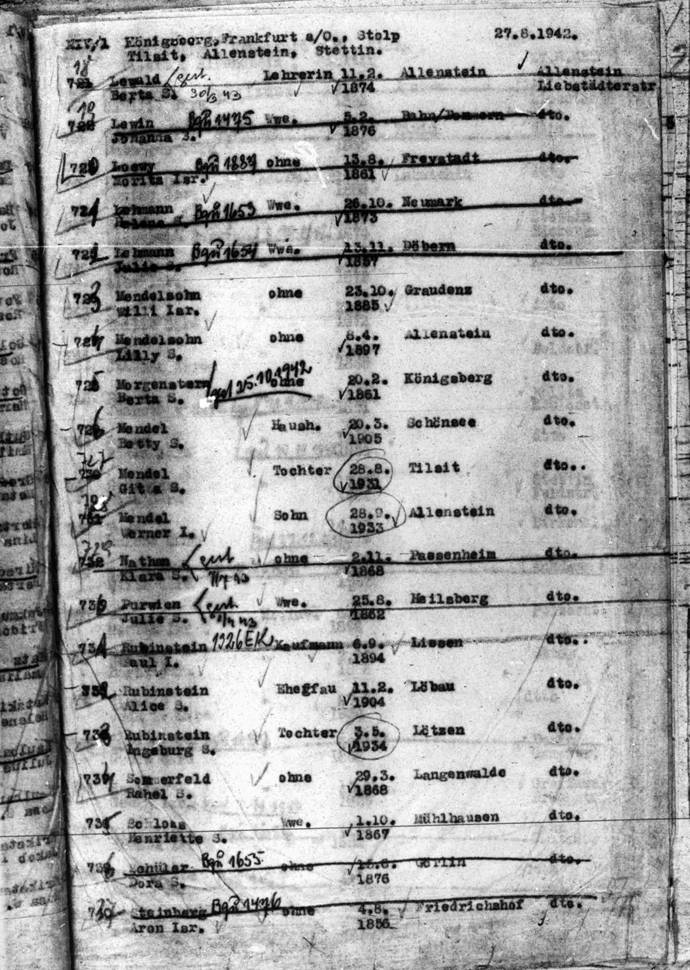 XIV/1 Königsberg, Frankfurt a/O., Stolp 27.8.1942.
Tilsit, Allenstein, Stettin.
Lewald gest. Lehrerin 11.2. Allenstein Allenstein
Berta S. 30/3 43 1874 Liebstädterstr
Lewin Bgü 1475 Wwe. 5.2. Bahn/Pommern dto.
Johanna S. 1876
Loewy Bgü 1887 ohne 13.8. Freystadt dto.
Moritz Isr. 1861
Lehmann Bgü 1653 Wwe. 26.10. Neumark dto.
1873
Lehmann Bgü 1654 Wwe. 13.11. Döbern dto.
Julie S. 1857
Mendelsohn ohne 23.10. Graudenz dto.
Willi Isr. 1885
Mendelsohn ohne 8.4. Allenstein dto.
Lilly S. 1897
Morgenstern gest 25.10.1942 ohne 20.2. Königsberg dto.
Berta S. 1861
Mendel Haush. 20.3. Schönsee dto.
Betty S. 1905
727 Mendel Tochter 28.8. Tilsit dto..
Gitta S. 1931
Mendel Sohn 28.9. Allenstein dto.
Werner I. 1933
Nathan gest. ohne 2.11. Passenheim dto.
Klara S. 1868
Purwien gest. Wwe. 25.8. Heilsberg dto.
Julie S. 1862
Rubinstein 1326EK Kaufmann 6.9. Lissen dto..
Paul I. 1894
Rubinstein Ehegfau 11.2. Löbau dto.
Alice S. 1904
Rubinstein Tochter 3.5. Lötzen dto.
Ingeburg S. 1934
Sommerfeld ohne 29.3. Langenwalde dto.
Rahel S. 1868
Schloss Wwe. 1.10. Mühlhausen dto.
Henriette S. 1867
Schüler Bgü 1655 ohne Görlin dto.
Dora S. 1876
Steinberg Bgü 1476 ohne 4.8. Friedrichshof dto.
Aron Isr. 1856